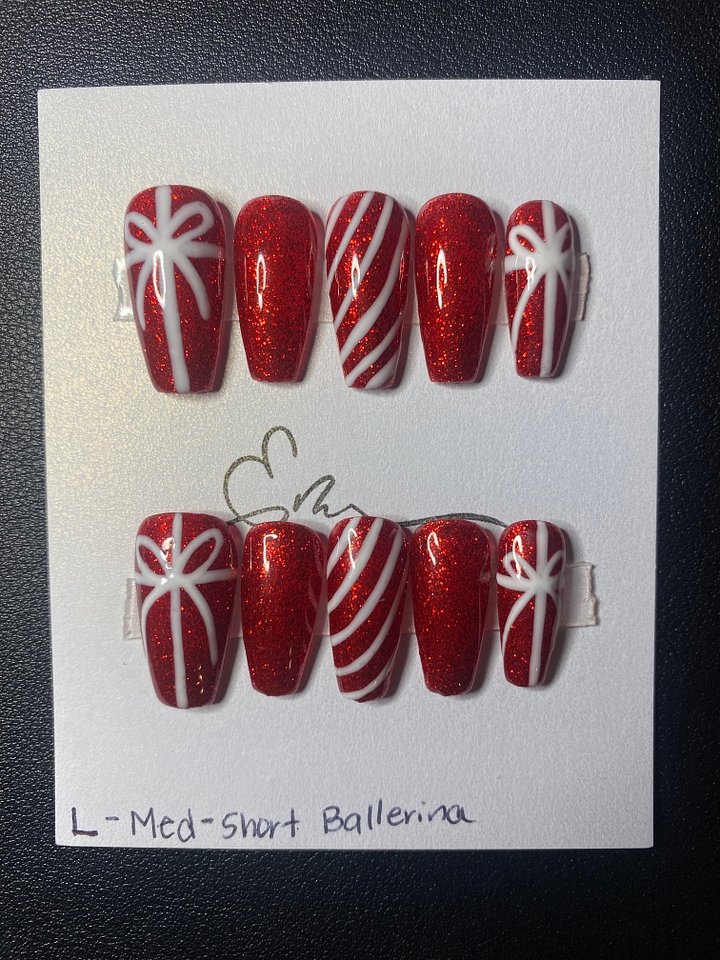 L - Med - Short Ballerina